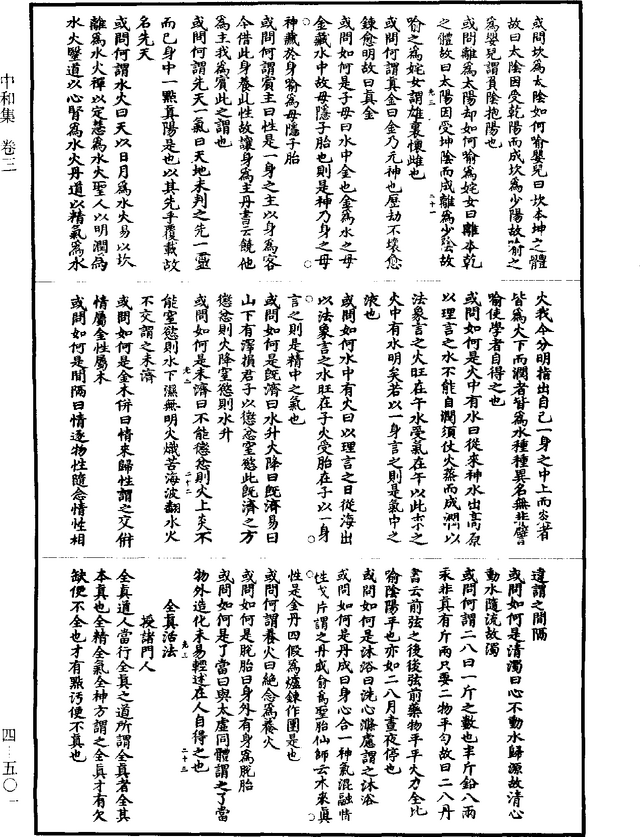 或問坎為太陰如何喻嬰兒曰坎本坤之體
故曰太陰因受乾陽而成坎為少陽故喻之
為嬰兒謂負陰抱陽也
或問離為太陽却如何喻為姹女曰離本乾
之體故曰太陽因受坤陰而成離為少陰故
喻之為姹女謂雄裏懷雌也
或問何謂真金曰金乃元神也歷劫不壞愈
鍊愈明故曰真金
或問如何是子母曰水中金也金為水之母
金藏水中故母隱子胎也則是神乃身之母
神藏於身喻為母隱子胎
或問何謂賓主曰性是一身之主以身為客
今借此身養此性故讓身為主丹書云饒他
為主我為賓此之謂也
或問何謂先天一氣曰天地未判之先一靈
而已身中一點真陽是也以其先乎覆載故
名先天
或問何謂水火曰天以日月為水火易以坎
離為水火禪以定慧為水火聖人以明潤為
水火醫道以心腎為水火丹道以精氣為水
火我今分明指出自己一身之中上而炎者
皆為火下而潤者皆為水種種異名無非譬
喻使學者自得之也
或問如何是火中有水曰從來神水出高原
以理言之水不能自潤須仗火蒸而成潤以
法象言之火旺在午水受氣在午以此求之
火中有水明矣若以一身言之則是氣中之
液也
或問如何水中有火曰以理言之日從海出
以法象言之水旺在子火受胎在子以一身
言之則是精中之氣也
或問如何是既濟曰水升火降曰既濟易曰
山下有澤損君子以懲忿窒慾此既濟之方
懲忿則火降窒慾則水升
或問如何是未濟曰不能懲忿則火上炎不
能窒慾則水下濕無明火熾苦海波翻水火
不交謂之未濟
或問如何是金木併曰情來歸性謂之交併
情屬金性屬木
或問如何是間隔曰情逐物性隨念情性相
違謂之間隔
或問如何是清濁曰心不動水歸源故清心
動水隨流故濁
或問何謂二八曰一斤之數也半斤鉛八兩
汞非真有斤兩只要二物平勻故曰二八丹
書云前弦之後後弦前藥物平平火力全比
喻陰陽平也亦如二八月晝夜停也
或問如何是沐浴曰洗心滌慮謂之沐浴
或問如何是丹成曰身心合一神氣混融情
性成片謂之丹成喻為聖胎仙師云本來真
性是金丹四假為爐鍊作團是也
或問何謂養火曰絕念為養火
或問如何是脫胎曰身外有身為脫胎
或問如何是了當曰與太虛同體謂之了當
物外造化未易輕述在人自得之也
全真活法
授諸門人
全真道人當行全真之道所謂全真者全其
本真也全精全氣全神方謂之全真才有欠
缺便不全也才有點污便不真也
中和集 卷三
四 - 五〇一